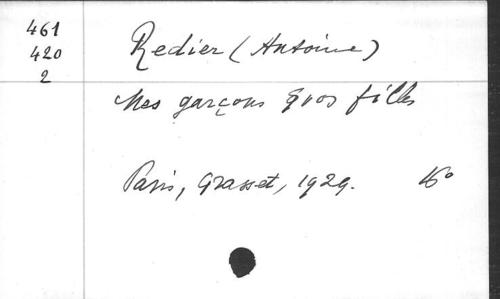 461
420
2
Redier (Antoine)
Mes garçons & vos filles
Paris, Grasset, 1929. 16°